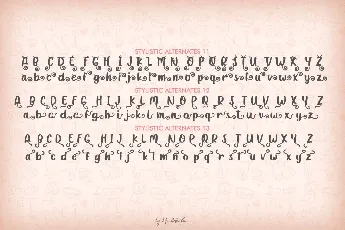 STYLISTIC ALTERNATES 11
A B C D E F G H I J K L M N O P Q R S T U V W X Y Z
a b c d e f g h i j k l m n o p q r s t u v w x y z
STYLISTIC ALTERNATES 12
A B C D E F G H I J K L M N O P Q R S T U V W X Y Z
a b c d e f g h i j k l m n o p q r s t u v w x y z
STYLISTIC ALTERNATES 13
A B C D E F G H I J K L M N O P Q R S T U V W X Y Z
a b c d e f g h i j k l m n o p q r s t u v w x y z